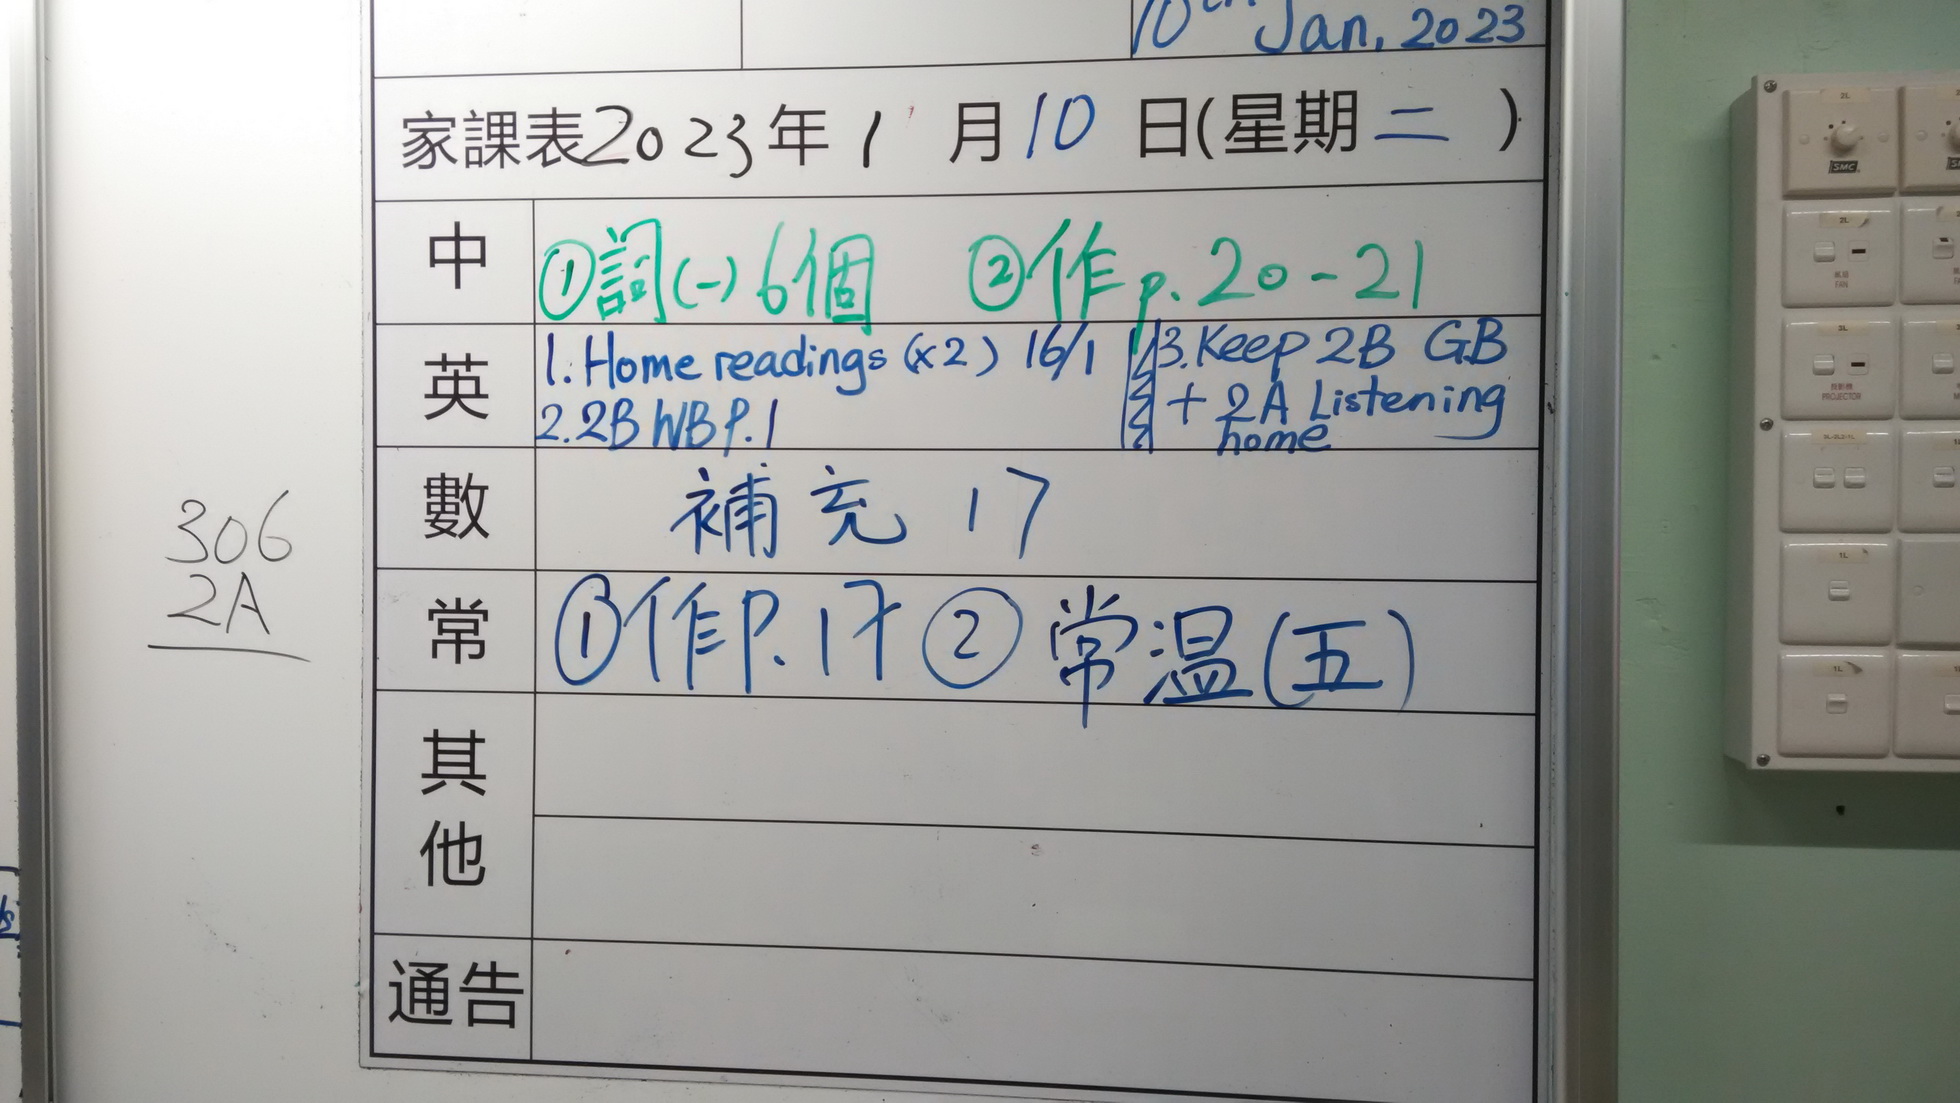 10th Jan, 2023
家課表2023年1月10日(星期二)
中
①詞(一)6個 ②作p.20-21
英
1. Home readings (x2) 16/1
2. 2B WB P.1
3. Keep 2B GB
+ 2A Listening
home
數
補充 17
常
①作P.17 ②常温(五)
其他
通告
306
2A
2L
SMC
2L
風扇
FAN
3L
PROJECTOR
1L
1L